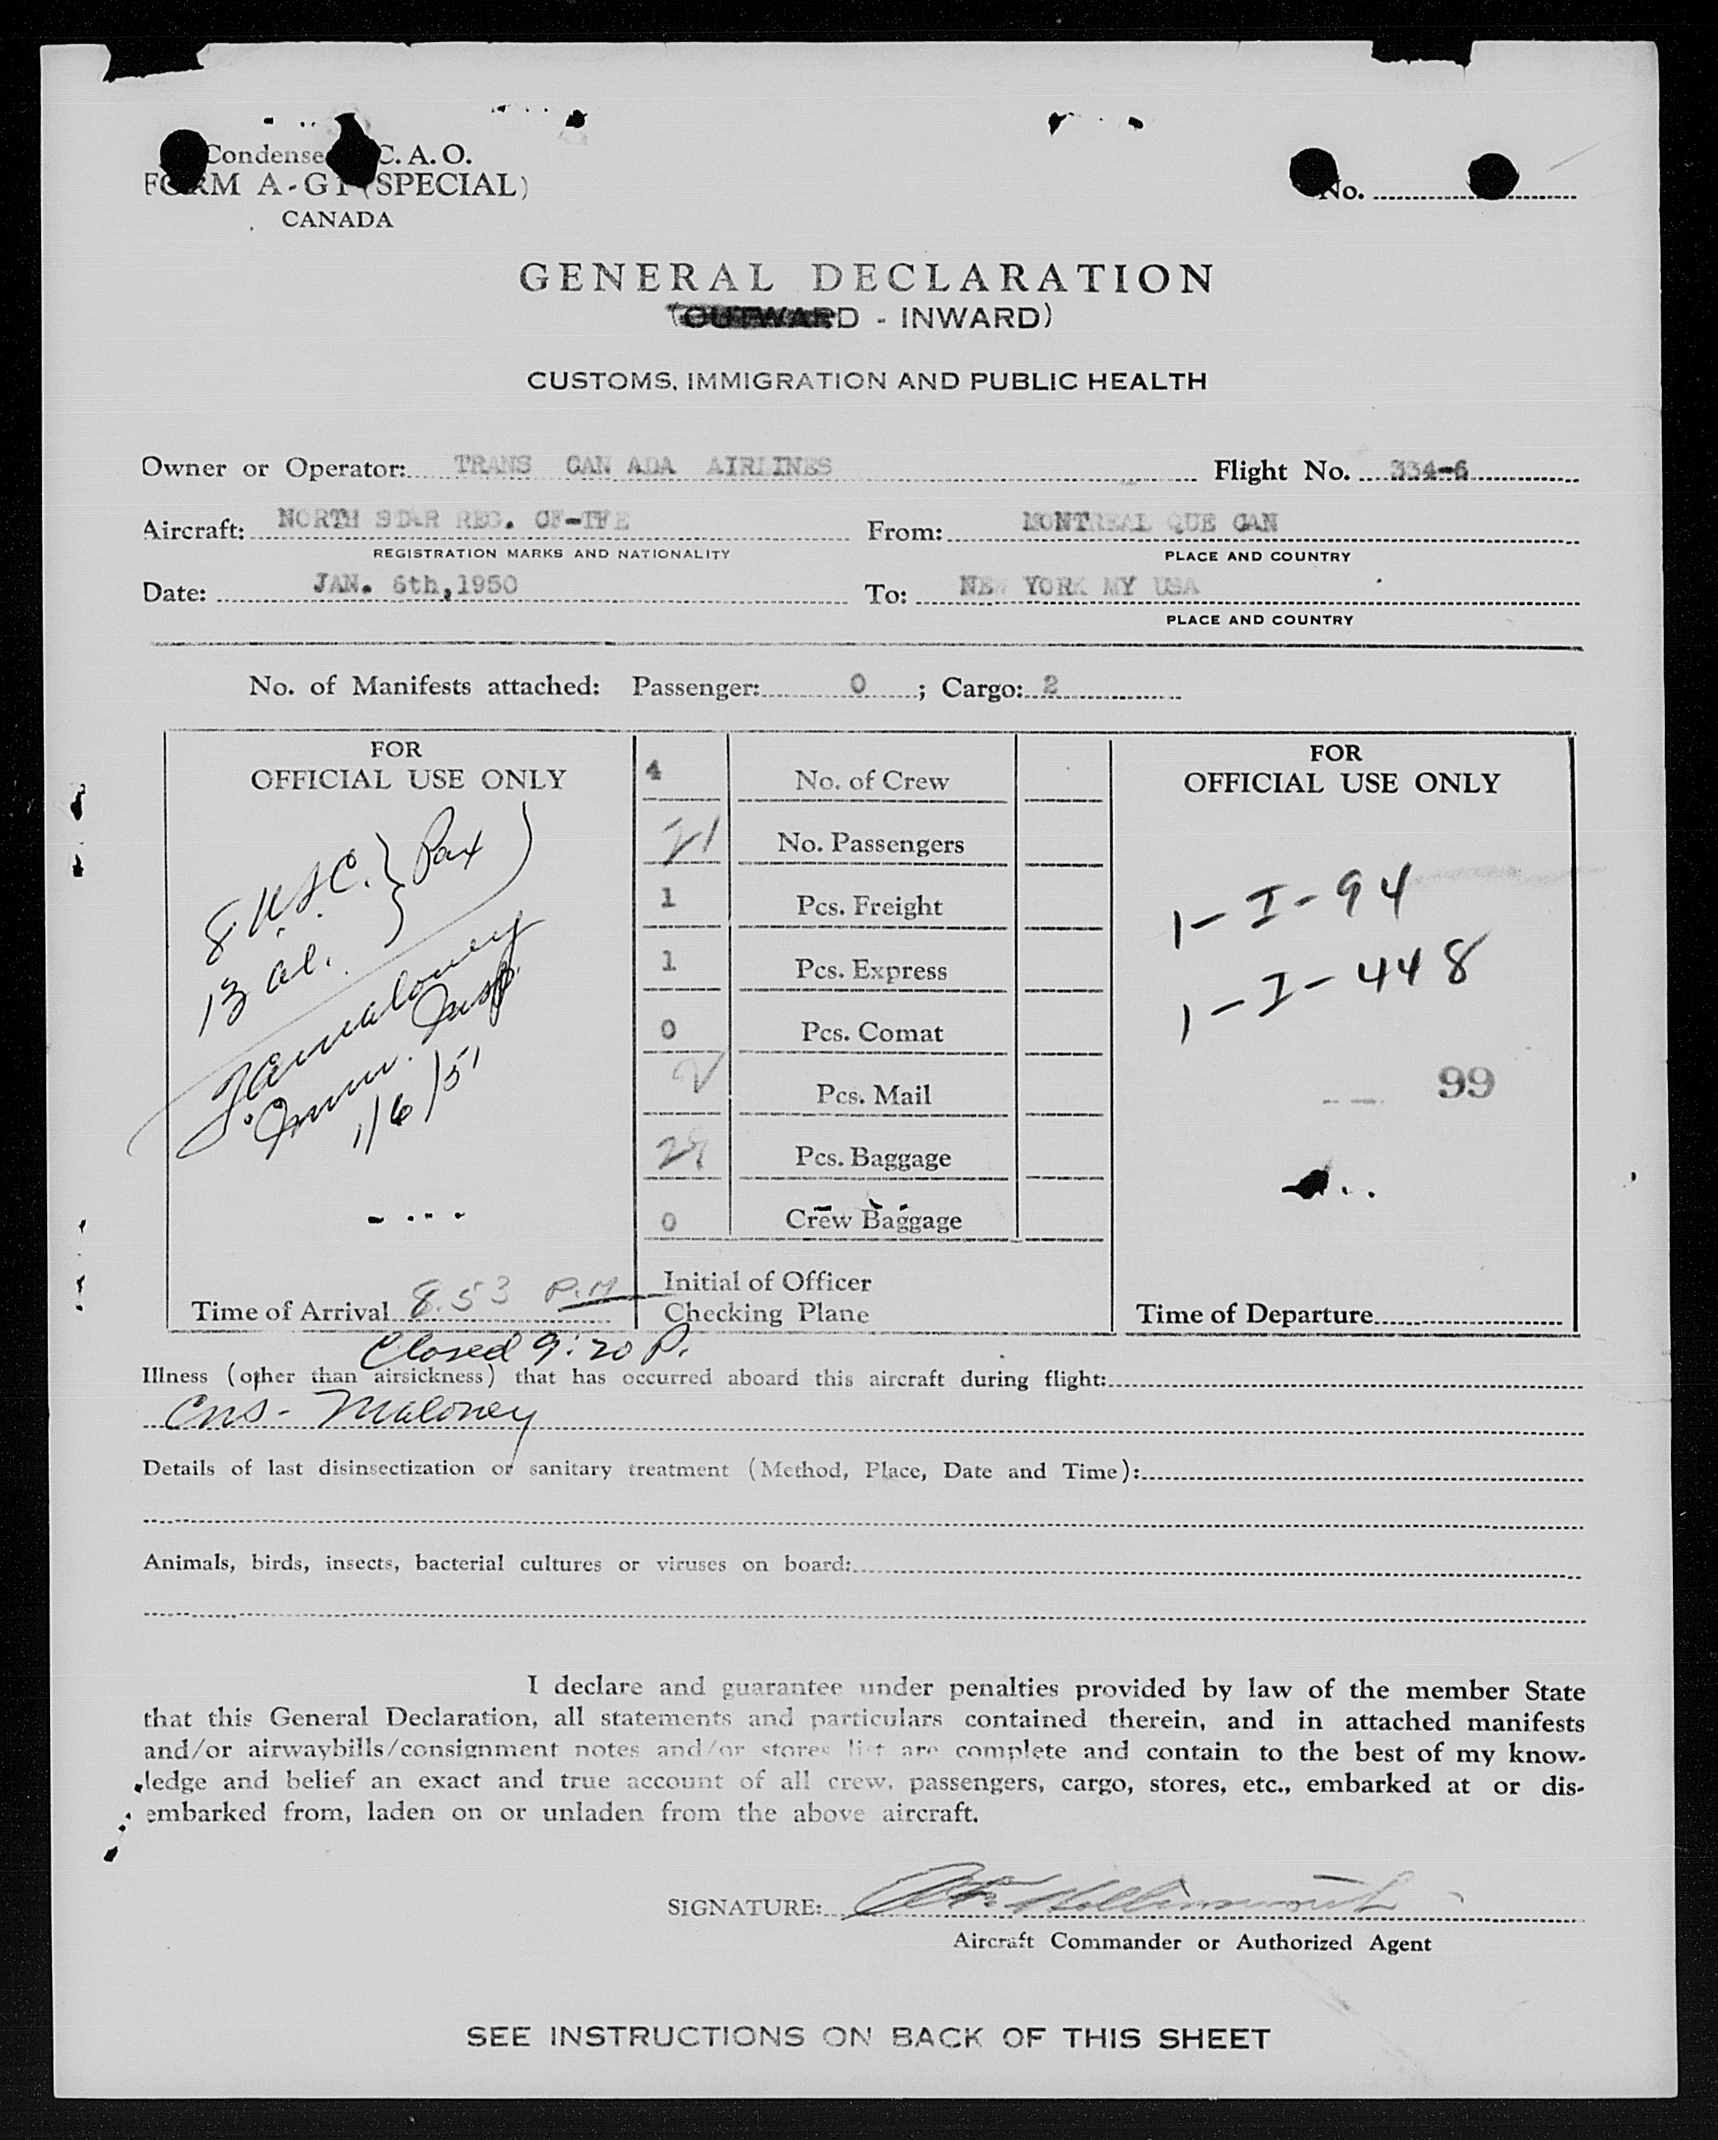 Condense C. A. O.
FORM A-G1 (SPECIAL)
CANADA
No.
GENERAL DECLARATION
(OUTWARD - INWARD)
CUSTOMS, IMMIGRATION AND PUBLIC HEALTH
Owner or Operator: TRANS CAN ADA AIRLINES Flight No. 334-6
Aircraft: NORTH STAR REG. CF-TFE From: MONTREAL QUE CAN
REGISTRATION MARKS AND NATIONALITY PLACE AND COUNTRY
Date: JAN. 6th, 1950 To: NEW YORK NY USA
PLACE AND COUNTRY
No. of Manifests attached: Passenger: 0 ; Cargo: 2
FOR
OFFICIAL USE ONLY
8 USC. } Pax
13 al.
Maloney
Imm. Insp
1/6/51
Time of Arrival 8.53 P.M
4 No. of Crew
21 No. Passengers
1 Pcs. Freight
1 Pcs. Express
0 Pcs. Comat
2 Pcs. Mail
Pcs. Baggage
0 Crew Baggage
Initial of Officer
Checking Plane
FOR
OFFICIAL USE ONLY
1-I-94
1-I-448
99
Time of Departure
Closed 9:20 P.
Illness (other than airsickness) that has occurred aboard this aircraft during flight:
Cns- Maloney
Details of last disinsectization or sanitary treatment (Method, Place, Date and Time):
Animals, birds, insects, bacterial cultures or viruses on board:
I declare and guarantee under penalties provided by law of the member State
that this General Declaration, all statements and particulars contained therein, and in attached manifests
and/or airwaybills/consignment notes and/or stores list are complete and contain to the best of my know-
ledge and belief an exact and true account of all crew, passengers, cargo, stores, etc., embarked at or dis-
embarked from, laden on or unladen from the above aircraft.
SIGNATURE:
Aircraft Commander or Authorized Agent
SEE INSTRUCTIONS ON BACK OF THIS SHEET